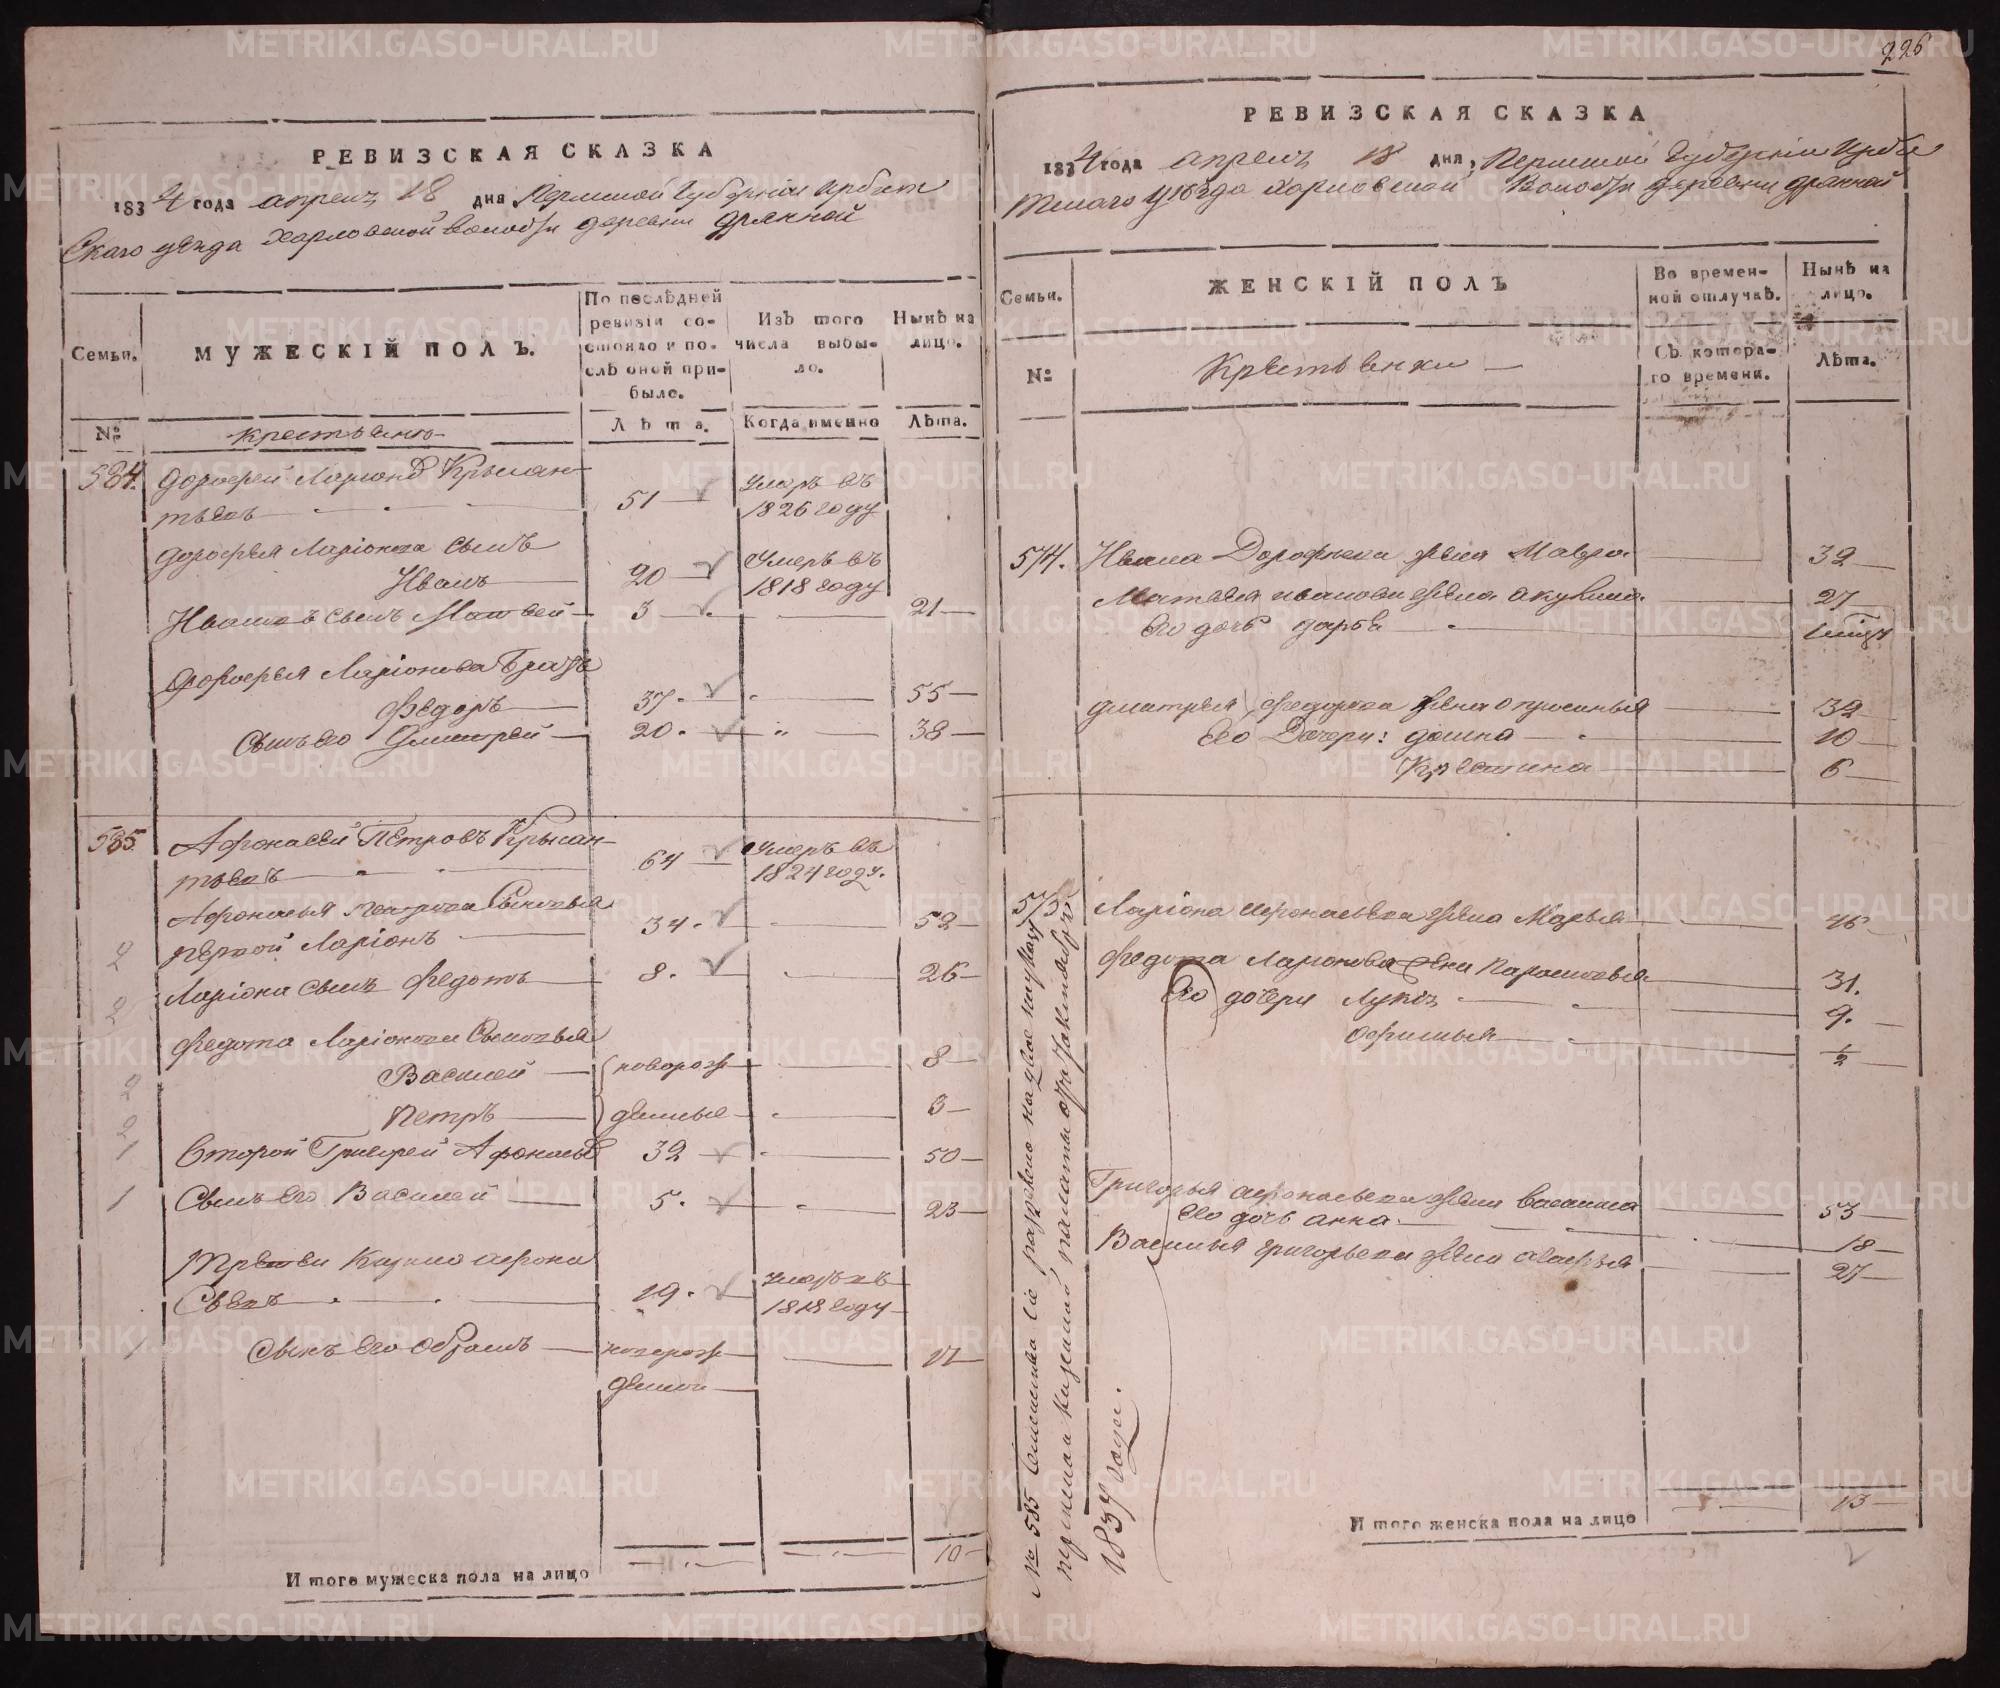 РЕВИЗСКАЯ СКАЗКА
1834 года апреля 18 дня Пермской Губерніи Ирбит
Скаго уезда Харловской волости деревни
Семьи.
МУЖЕСКІЙ ПОЛЪ.
По послѣдней
ревизіи со-
стояло и по-
слѣ оной при-
было.
Изъ того
числа выбы-
ло.
Нынѣ на
лицо.
№
крестьяне
Лѣта.
Когда именно
Лѣта.
584. Дорофей Ларионов Крысан-
тьевъ 51 умеръ въ
1826 году
Дорофея Ларіонова сынъ
Иванъ 20 Умеръ въ
1818 году
Ивановъ сынъ Матвей 3 21
Дорофея Ларіонова братъ
Федоръ 37. 55
Сынъ его Дмитрей 20. 38
585. Афонасей Петровъ Крысан-
тьевъ 64 Умеръ въ
1824 году.
Афонасья Петрова Сыновья
первой Ларіонъ 34. 52
2
Ларіона сынъ Федотъ 8. 26
2
Федота Ларіонова Сыновья
Василей новорож 8
2
Петръ денные 3
2
Второй Григорей Афонасьев 32 50
1
Сынъ его Василей 5. 23
1
Третей Кузма Афона
Съевъ 19. умеръ въ
1818 году
Сынъ его Абрамъ новорож 17
1
денной
Итого мужеска пола на лицо 10
226
РЕВИЗСКАЯ СКАЗКА
1834 года апреля 18 дня, Пермской Губерніи Ирби
тскаго уѣзда Харловской Волости деревни
Семьи.
ЖЕНСКІЙ ПОЛЪ
Во времен-
ной отлучкѣ.
Нынѣ на
лицо.
№
Крестьянки
Съ котора-
го времени.
Лѣта.
574. Ивана Дорофеева жена Мавра 39
Матвея иванова жена акулина 27
Его дочь дарья
дмитрея федорова жена опросинья 39
Его Дочери: домна 10
Крестина 6
575 Ларіона афонасьева жена Марья 46
Федота Ларионова жена Парасковья 31.
Его дочери Лукія 9.
Офимья 1/2
Григорья афонасьева жена василиса 53
Его дочь анна 18
Василья григорьева жена 27
№ 585 Семейство сіе разделено на двое по указу
пермской казенной палаты отъ
1837 года.
Итого женска пола на лицо 13